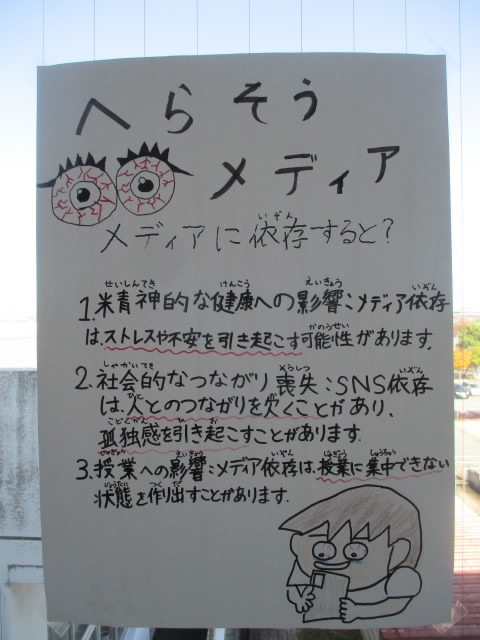 へらそう
メディア
メディアに依存すると?
いぞん
1.精神的な健康への影響:メディア依存
せいしんてき けんこう えいきょう いぞん
はストレスや不安を引き起こす可能性があります。
かのうせい
2.社会的なつながり喪失:SNS依存
しゃかいてき そうしつ
は、人とのつながりを欠くことがあり、
孤独感を引き起こすことがあります。
こどくかん
3.授業への影響:メディア依存は、授業に集中できない
じゅぎょう えいきょう いぞん じゅぎょう しゅうちゅう
状態を作り出すことがあります。
じょうたい つく だ